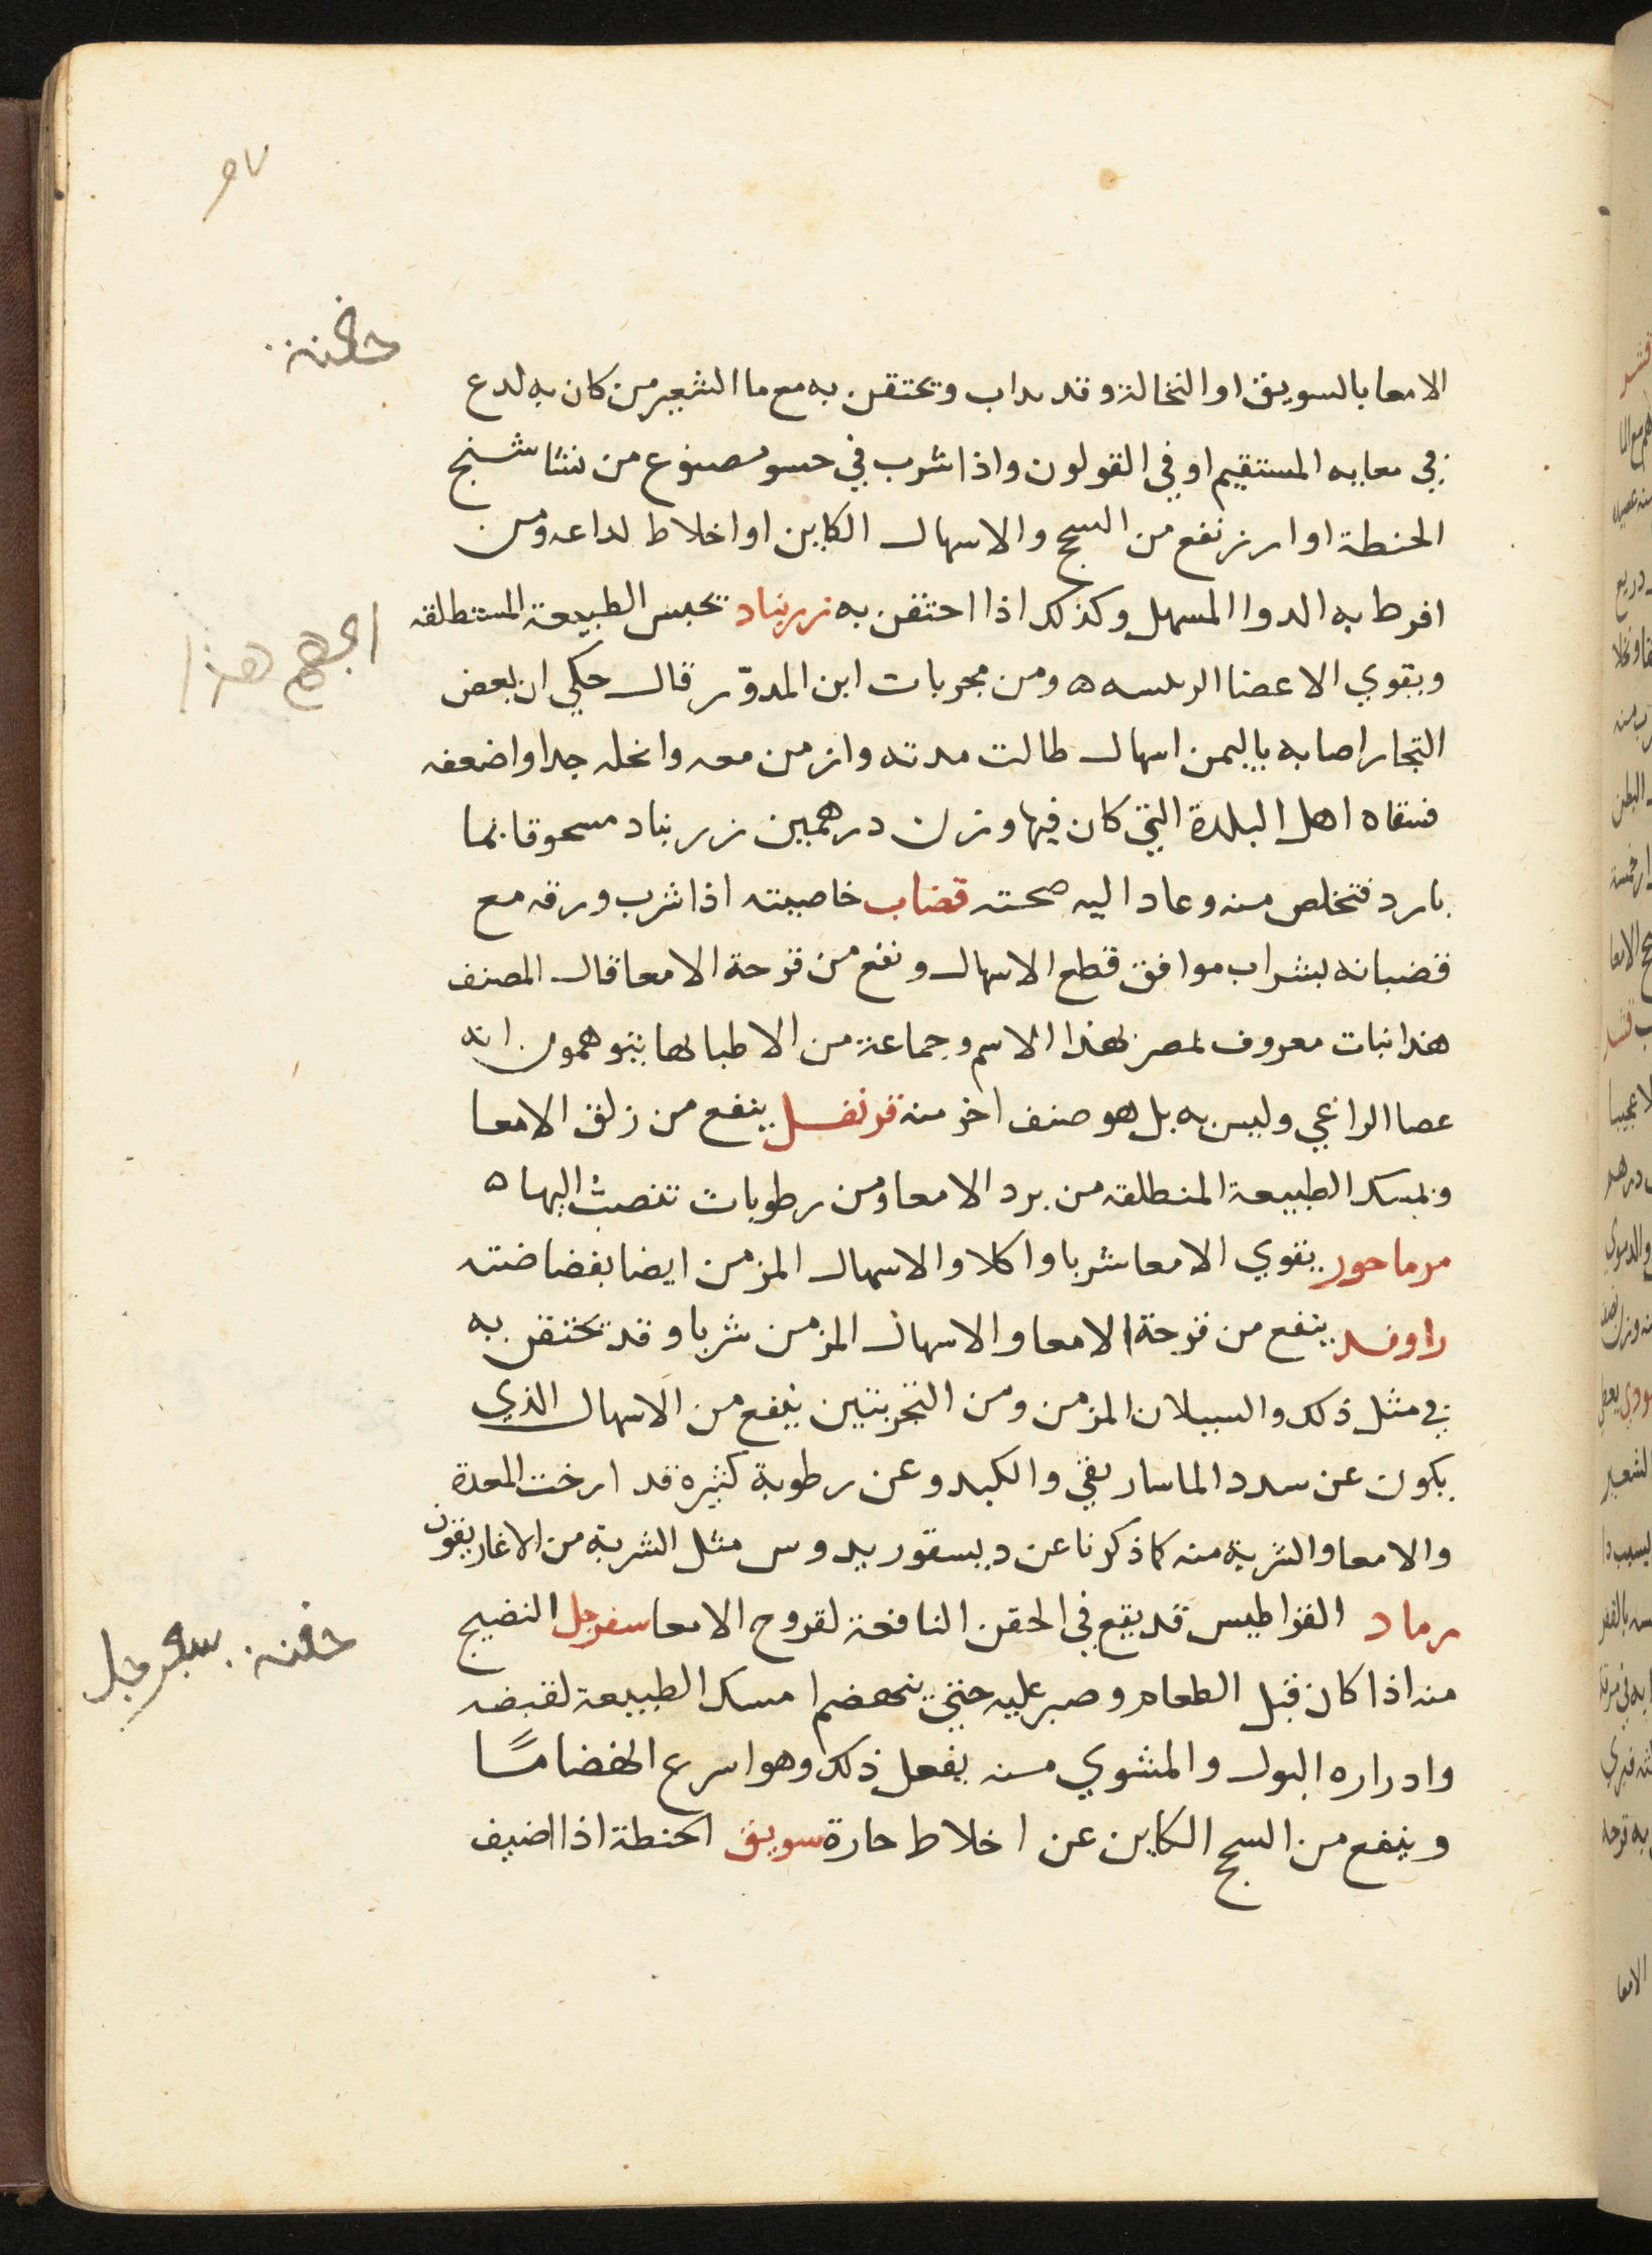 ٩٧
حقنة
الامعا بالسويق او النخالة وقد يداب ويحتقن به مع ما الشعير من كان به لدع
في معايه المستقيم او في القولون واذا شرب في حسو مصنوع من نشاشنج
الحنطة او ارز نفع من السحج والاسهال الكاين او اخلاط لداعه ومن
افرط به الدوا المسهل وكذلك اذا احتقن به زرنباد يحبس الطبيعة المستطلقه
هذا
ويقوي الاعضا الرئيسه ه ومن مجربات ابن المدوّر قال حكي ان بعض
التجار اصابه باليمن اسهال طالت مدته وازمن معه وانحله جدا واضعفه
فسقاه اهل البلدة التي كان فيها وزن درهمين زرنباد مسحوقا بما
بارد فتخلص منه وعاد اليه صحته قضاب خاصيته اذا شرب ورقه مع
قضبانه بشراب موافق قطع الاسهال ونفع من قرحة الامعا قال المصنف
هذا نبات معروف بمصر بهذا الاسم وجماعة من الاطبا بها يتوهمون انه
عصا الراعي وليس به بل هو صنف اخر منه قرنفل ينفع من زلق الامعا
ويمسك الطبيعة المنطلقه من برد الامعا ومن رطوبات تنصبّ اليها ه
مرماحور يقوي الامعا شربا واكلا والاسهال المزمن ايضا بفضاضته
راوند ينفع من قرحة الامعا والاسهال المزمن شربا وقد يحتقن به
في مثل ذلك والسيلان المزمن ومن التجربتين ينفع من الاسهال الذي
يكون عن سدد الماساريقي والكبد وعن رطوبة كثيرة قد ارخت المعدة
والامعا والشربة منه كما ذكرنا عن ديسقوريدوس مثل الشربة من الاغاريقون
رماد القراطيس قد يقع في الحقن النافعة لقروح الامعا سفرجل النضيج
حقنة سفرجل
منه اذا كان قبل الطعام وصبر عليه حتى ينهضم امسك الطبيعة لقبضه
وادراره البول والمشوي منه يفعل ذلك وهو اسرع انهضامًا
وينفع من السحج الكاين عن اخلاط حارة سويق الحنطة اذا اضيف